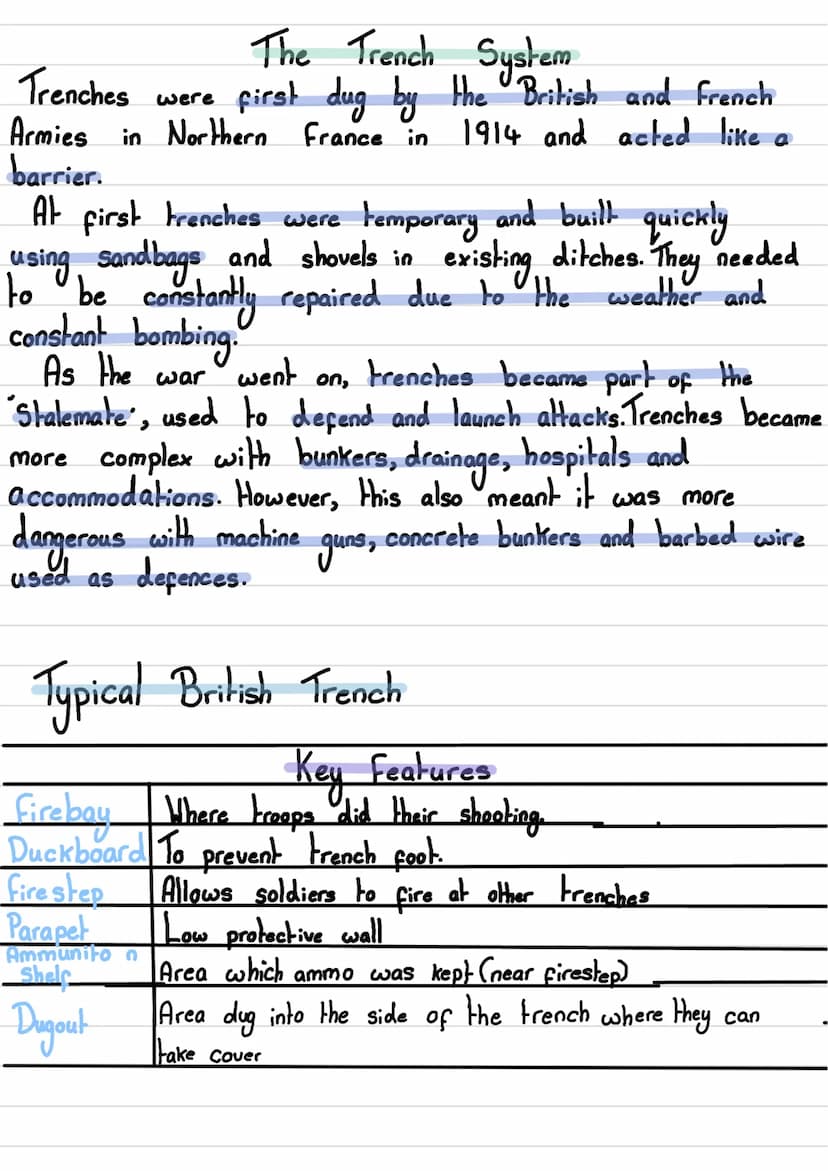 The Trench System
Trenches were first dug by the British and French
Armies in Northern France in 1914 and acted like a
barrier.
At first trenches were temporary and built quickly
using sandbags and shovels in existing ditches. They needed
to be constantly repaired due to the weather and
constant bombing.
As the war went on, trenches became part of the
'Stalemate', used to defend and launch attacks. Trenches became
more complex with bunkers, drainage, hospitals and
accommodations. However, this also meant it was more
dangerous with machine guns, concrete bunkers and barbed wire
used as defences.
Typical British Trench
Key Features
Firebay Where troops did their shooting.
Duckboard To prevent trench foot.
Firestep Allows soldiers to fire at other trenches
Parapet Low protective wall
Ammunito n
Shelf Area which ammo was kept (near firestep)
Dugout Area dug into the side of the trench where they can
take cover